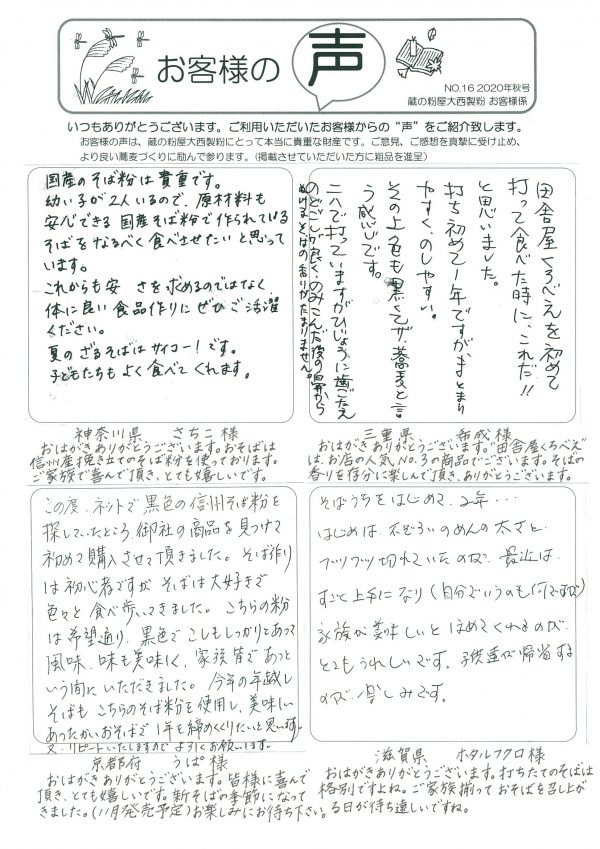 お客様の声
NO.16 2020年秋号
蔵の粉屋大西製粉 お客様係
いつもありがとうございます。ご利用いただいたお客様からの“声”をご紹介致します。
お客様の声は、蔵の粉屋大西製粉にとって本当に貴重な財産です。ご意見、ご感想を真摯に受け止め、
より良い蕎麦づくりに励んで参ります。(掲載させていただいた方に粗品を進呈)
国産のそば粉は貴重です。
幼い子が2人いるので、原材料も
安心できる国産そば粉で作られている
そばをなるべく食べさせたいと思って
います。
これからも安さを求めるのではなく、
体に良い食品作りにぜひご活躍
ください。
夏のざるそばはサイコー!です。
子どもたちもよく食べてくれます。
神奈川県 さちこ様
おはがきありがとうございます。おそばは
信州産挽き立てのそば粉を使っております。
ご家族で喜んで頂き、とても嬉しいです。
田舎屋くろべえを初めて
打って食べた時に、これだ!!
と思いました。
打ち初めて1年ですが、まとまり
やすく、のしやすい。
その上色も黒くてザ・蕎麦と言
う感じです。
二八で打っていますがひじょうに歯ごたえ
のどごしが良く、のみこんだ後の鼻から
ぬけるそばの香りがたまりません。
三重県 希成様
おはがきありがとうございます。“田舎屋くろべえ”
は、お店の人気No.1の商品でございます。そばの
香りを存分に楽しんで頂き、ありがとうございます。
この度、ネットで黒色の信州そば粉を
探していたところ、御社の商品を見つけて
初めて購入させて頂きました。そば作り
は初心者ですがそばは大好きで
色々と食べ歩いてきました。こちらの粉
は希望通り、黒色でこしもしっかりとあって
風味、味も美味しく、家族皆であっと
いう間にいただきました。今年の年越し
そばもこちらのそば粉を使用し、美味しい
あったかいおそばで1年を締めくくりたいと思います。
又、リピートいたしますのでよろしくお願いします。
京都府 うぱ様
おはがきありがとうございます。皆様に喜んで
頂き、とても嬉しいです。新そばの季節になって
きました。(11月発売予定)お楽しみにお待ち下さい。
そばうちをはじめて、2年・・・
はじめは、不ぞろいのめんの太さと
ブツブツ切れていたのが、最近は、
すごく上手になり(自分でいうのも何ですが)
家族が美味しいとほめてくれるのが、
とてもうれしいです。子供達が帰省する
のが、楽しみです。
滋賀県 ホタルフクロ様
おはがきありがとうございます。打ちたてのそばは
格別ですよね。ご家族揃っておそばを召し上が
る日が待ち遠しいですね。